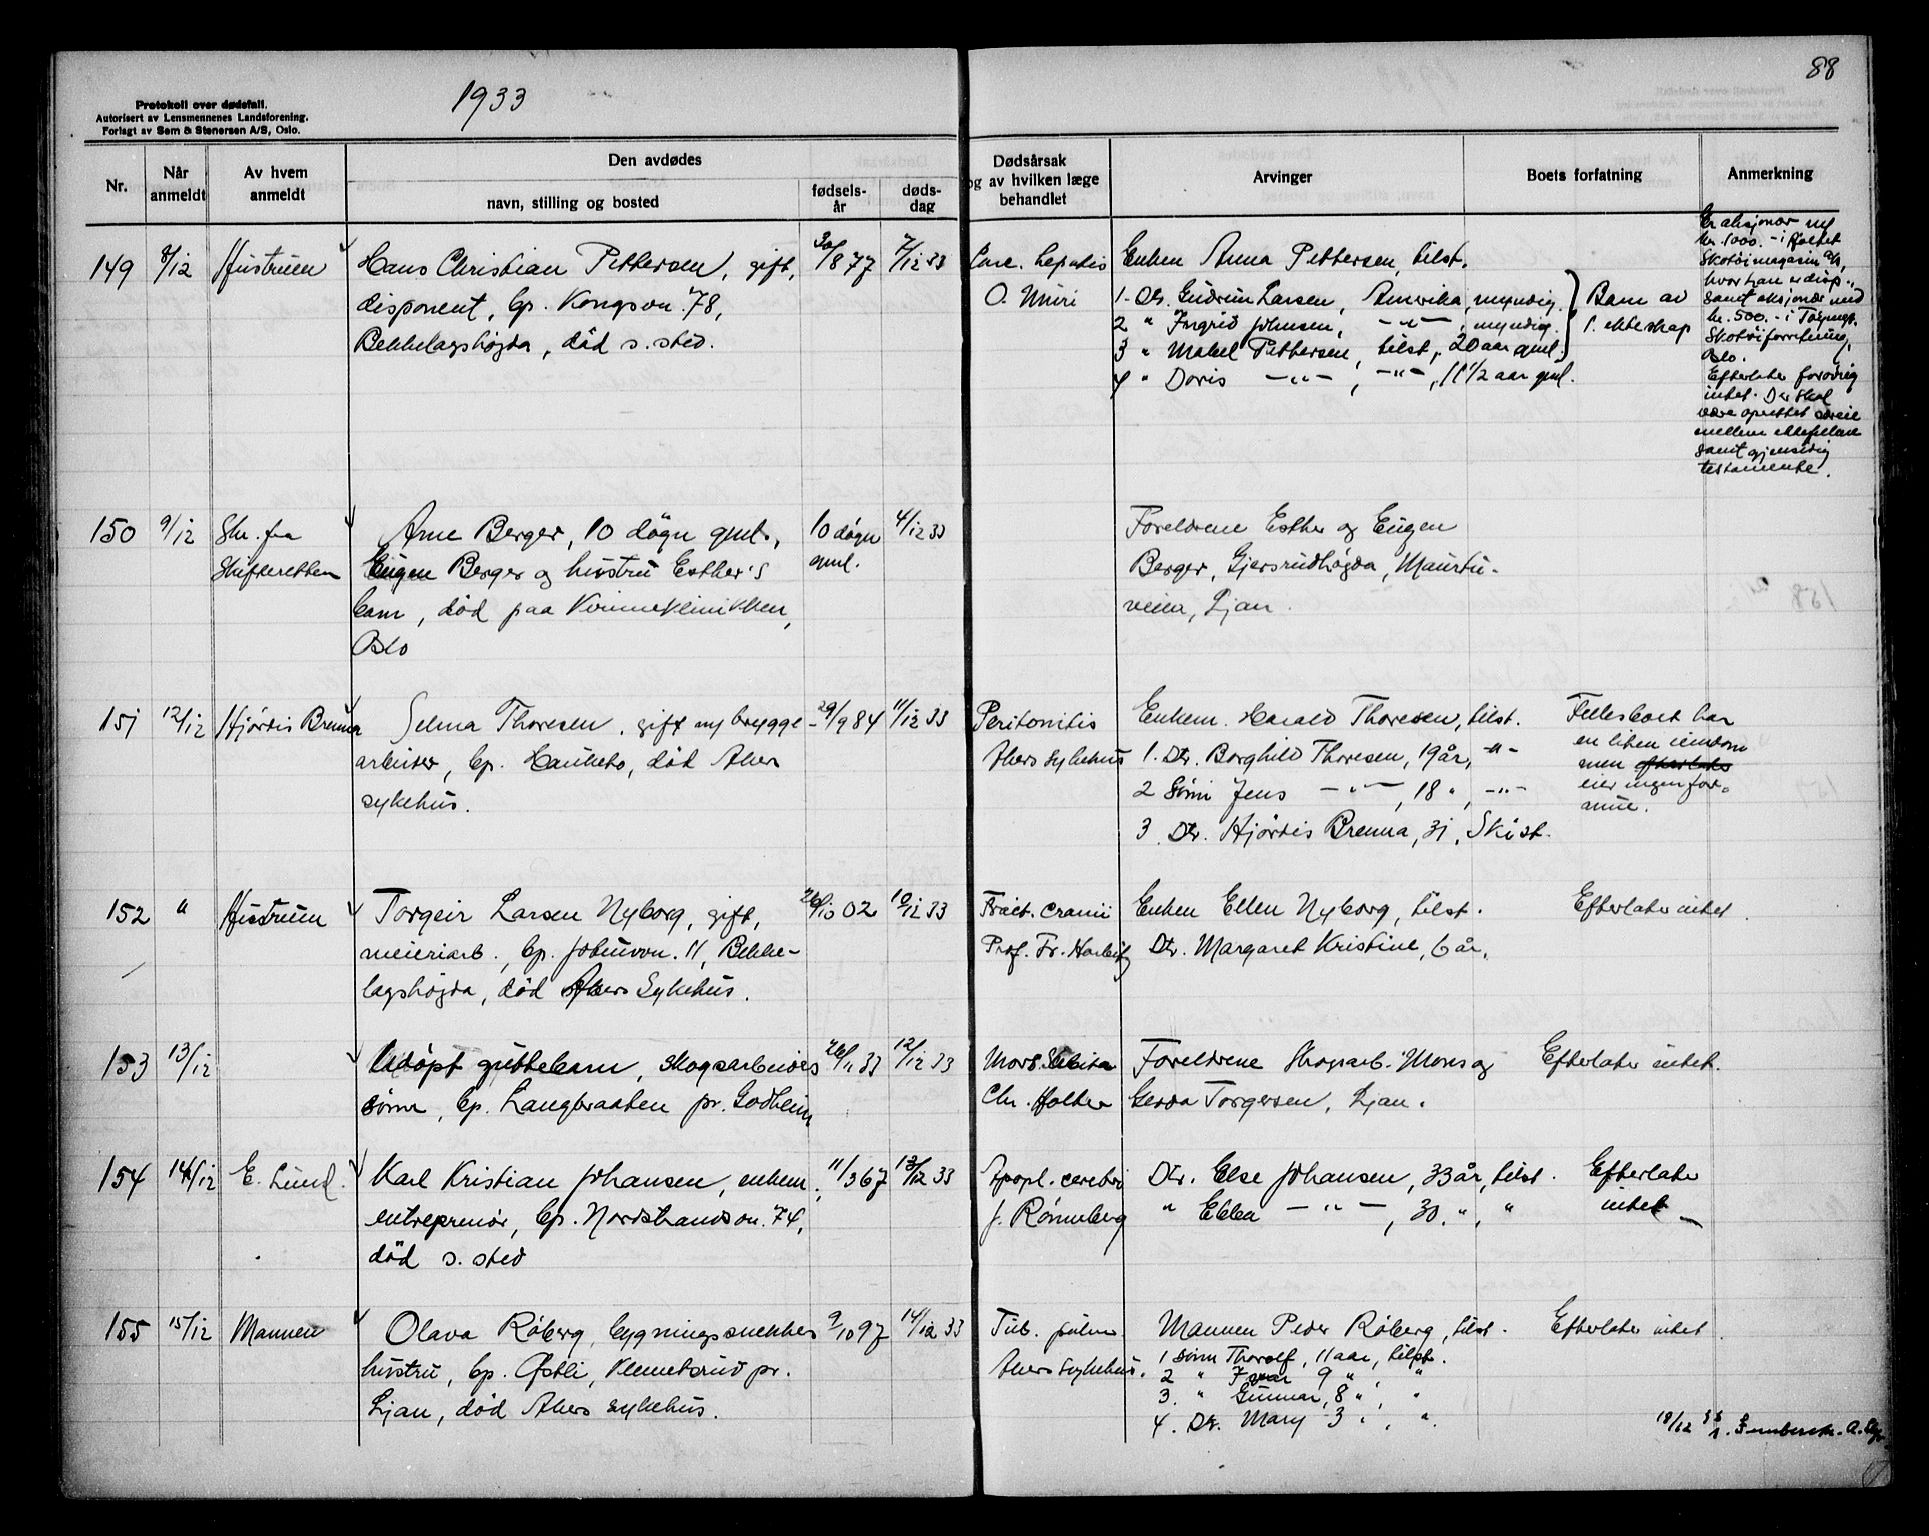 1933
88
Protokoll over dødsfall.
Autorisert av Lensmennenes Landsforening.
Forlagt av Sem & Stenersen A/S, Oslo.
Nr.
Når anmeldt
Av hvem anmeldt
Den avdødes
navn, stilling og bosted
fødsels-år
døds-dag
Dødsårsak og av hvilken læge behandlet
Arvinger
Boets forfatning
Anmerkning
149 8/12 Hustruen Hans Christian Pettersen, gift, 30/8 77 7/12 33
disponent, bp. Kongsvn. 78,
Bekkelagshøgda, død s. sted.
Canc. hepatis
Enken Anna Pettersen, tilst.
1. Dtr. Gudrun Larsen, Amerika, myndig
2 " Ingrid Johnsen, -"-, myndig.
3 " Mabel Pettersen, tilst., 20 aar gml.
4 " Doris -"-, -"-, 11 1/2 aar gml.
Barn av
1. ekteskap
Er aksjonær
kr. 1000.- i
Skotøimagasin A/S,
hvor han er disp.,
samt aksjonær med
kr. 500.- i
Skotøiforretning,
Oslo.
Efterlater forøvrig
intet. Der skal
være oprettet særeie
mellem ektefellene
samt gjensidig
testamente.
150 9/12 Skr. fra Arne Berger, 10 døgn gml., 10 døgn 4/12 33
Skifteretten Eugen Berger og hustru Esther's gml.
barn, død paa Kvinneklinikken,
Oslo
Foreldrene Esther og Eugen
Berger, Gjersrudhøgda, Maurtu-
veien, Ljan.
151 12/12 Hjørdis Brenna Selma Thoresen, gift m/ brygge- 29/9 84 11/12 33
arbeider, bp. Hauketo, død Aker
sykehus.
Peritonitis
Akers sykehus
Enkem. Harald Thoresen, tilst.
1. Dtr. Borghild Thoresen, 19 år, -"-
2 Sønn Jens -"-, 18 ", -"-
3. Dtr. Hjørdis Brenna, 31, Ski st.
Fellesboet har
en liten eiendom
men efterlater
eier ingen for-
mue.
152 " Hustruen Torgeir Larsen Nyborg, gift, 26/10 02 10/12 33
meieriarb., bp. Jomfruvn. 11, Bekke-
lagshøgda, død Akers Sykehus.
Fract. cranii
Prof. Fr. Harbitz
Enken Ellen Nyborg, tilst.
Dtr. Margaret Kristine, 6 år.
Efterlater intet.
153 13/12 Udøpt guttebarn, skogsarbeiders 26/11 33 12/12 33
sønn, bp. Langbraaten pr. Godheim
Mors subita
Chr. Holter
Foreldrene skogarb. Mons og
Gerda Torgersen, Ljan.
Efterlater intet.
154 14/12 E. Lund. Karl Kristian Johansen, enkem., 11/3 67 13/12 33
entreprenør, bp. Nordstrandsvn. 74,
død s. sted
Apopl. cerebri
J. Rønneberg
Dtr. Else Johansen, 33 år, tilst.
" Ebba -"-, 30, ", "
Efterlater
intet
155 15/12 Mannen Olava Røberg, bygningssnekkers 9/10 97 14/12 33
hustru, bp. Østli, Klemetsrud pr.
Ljan, død Akers sykehus.
Tub. pulm.
Akers sykehus.
Mannen Peder Røberg, tilst.
1 sønn Thorolf, 11 aar, tilst.
2 " Ivar 9 ", "
3. " Gunnar, 8 ", "
4. Dtr. Mary 3 ", ".
Efterlater intet.
18/12 33